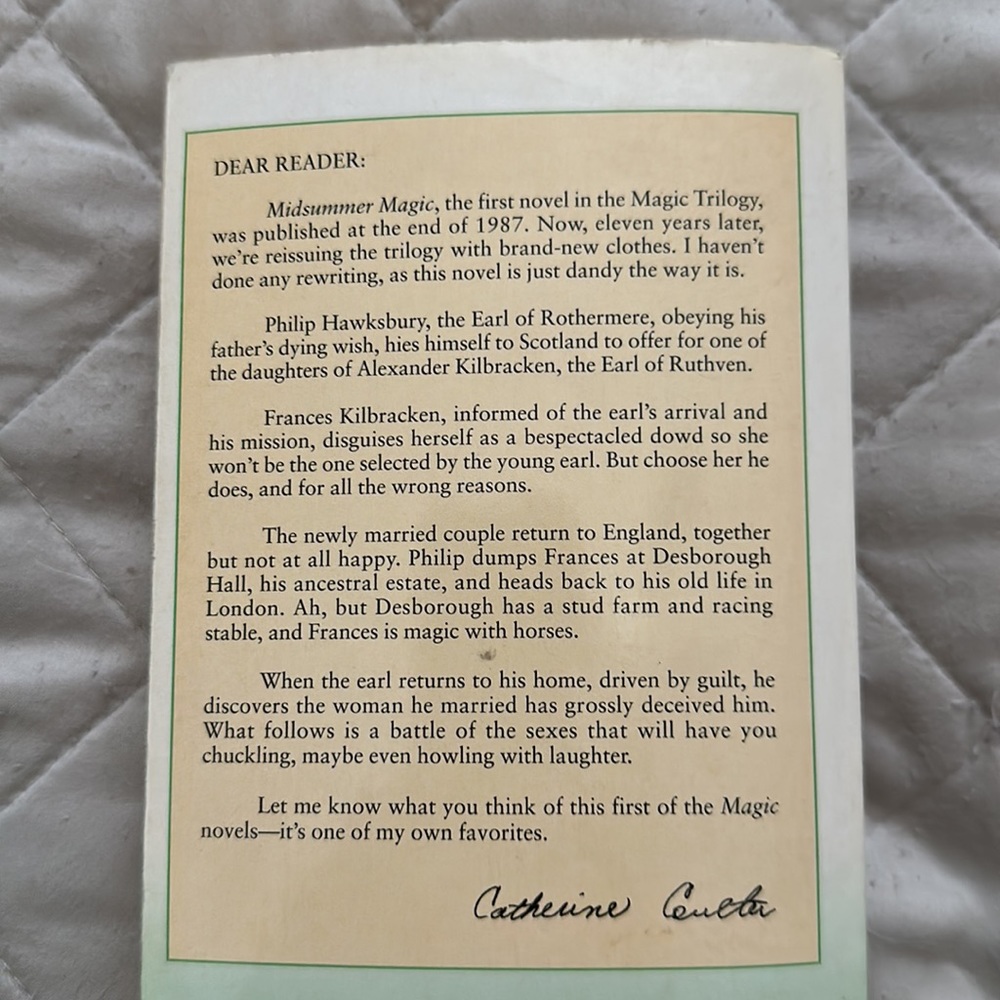 DEAR READER:
Midsummer Magic, the first novel in the Magic Trilogy,
was published at the end of 1987. Now, eleven years later,
we're reissuing the trilogy with brand-new clothes. I haven't
done any rewriting, as this novel is just dandy the way it is.
Philip Hawksbury, the Earl of Rothermere, obeying his
father's dying wish, hies himself to Scotland to offer for one of
the daughters of Alexander Kilbracken, the Earl of Ruthven.
Frances Kilbracken, informed of the earl's arrival and
his mission, disguises herself as a bespectacled dowd so she
won't be the one selected by the young earl. But choose her he
does, and for all the wrong reasons.
The newly married couple return to England, together
but not at all happy. Philip dumps Frances at Desborough
Hall, his ancestral estate, and heads back to his old life in
London. Ah, but Desborough has a stud farm and racing
stable, and Frances is magic with horses.
When the earl returns to his home, driven by guilt, he
discovers the woman he married has grossly deceived him.
What follows is a battle of the sexes that will have you
chuckling, maybe even howling with laughter.
Let me know what you think of this first of the Magic
novels—it's one of my own favorites.
Catherine Coulter